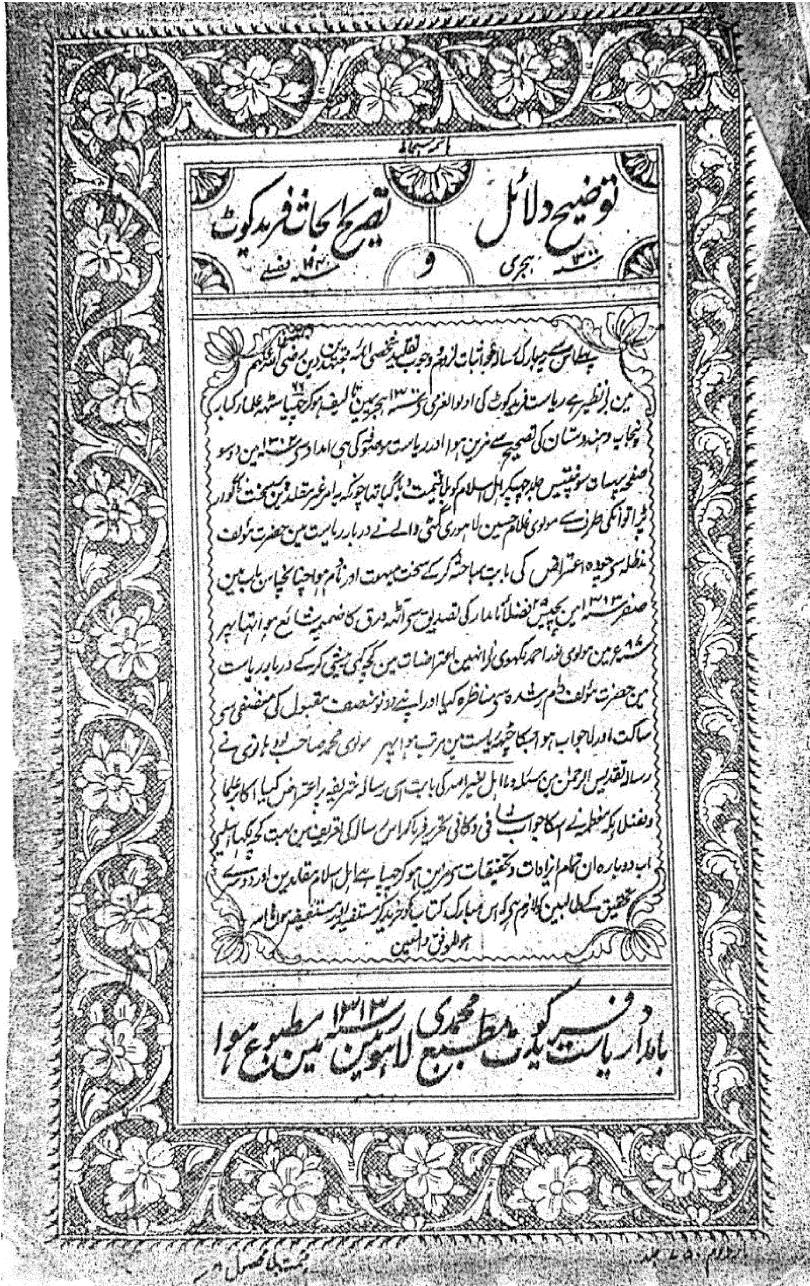 باسم سبحانہ
توضیح دلائل
۱۳۰۰ سنہ ہجری
و
تصریح ابحاث فرید کوٹ
سنہ فصلے
رسالہ اثبات لزوم و وجوب تقلید شخصی ائمہ مجتہدین دین رضی اللہ عنہم
مین بے نظیر ہے ریاست فرید کوٹ کی اولوالعزمی سے سنہ ۱۳۰۰ ہجری مین تالیف ہوکر چھیاسٹھہ ۶۶ علماء کبار
پنجاب و ہندوستان کی تصحیح سے مزین ہوا اور ریاست موصوفہ کی ہی امداد سے سنہ ۱۳۰۲ مین دو سو
صفحہ پہ سات سو جلد چھپکر اہل اسلام کو بلا قیمت دیا گیا تہا چونکہ یہ امر غیر مقلدین کو سخت ناگوار
گذرا تو انکی طرف سے مولوی غلام حسین لاہوری گٹی والے نے دربار ریاست مین حضرت مؤلف
مدظلہ سے چودہ اعتراض کی بابت مباحثہ کرکے سخت مبہوت اور نادم ہوا چنانچہ اس باب مین
صفر سنہ ۱۳۱۳ مین پچیس ۲۵ فضلاء نامدار کی تصدیق سے آٹھہ ورق کا ضمیمہ شائع ہوا تہا پہر
سنہ ۹۷ء مین مولوی نور احمد لکہوی نے انہین اعتراضات مین کچھہ کمی بیشی کرکے دربار ریاست
مین حضرت مؤلف دام رشدہ سے مناظرہ کیا اور اپنے دونو منصف مقبول کی منصفی سے
ساکت اور لاجواب ہوا جسکا ضمیمہ ریاست مین مرتب ہوا پہر مولوی محمد صاحب لودہانوی نے
رسالہ تقدیس الرحمن مین مسئلہ وما اہل لغیر اللہ کی بابت اسی رسالہ شریفہ پر اعتراض کیا اکابر علما
و فضلا مکہ معظمہ نے اسکا جواب شافی و کافی تحریر فرماکر اس رسالہ کی تعریف مین بہت کچھہ لکہا
اب دوبارہ ان تمام ایزادات و تحقیقات سے مزین ہوکر چھپا ہے اہل اسلام مقلدین اور دوسرے
تحقیق کے طالبین کو لازم ہے کہ اس مبارک کتاب کو خرید کر مستفید اور مستفیض ہون
ہو الموفق والمعین
بامداد ریاست فرید کوٹ مطبع محمدی لاہور مین سنہ ۱۳۱۳ مین مطبوع ہوا